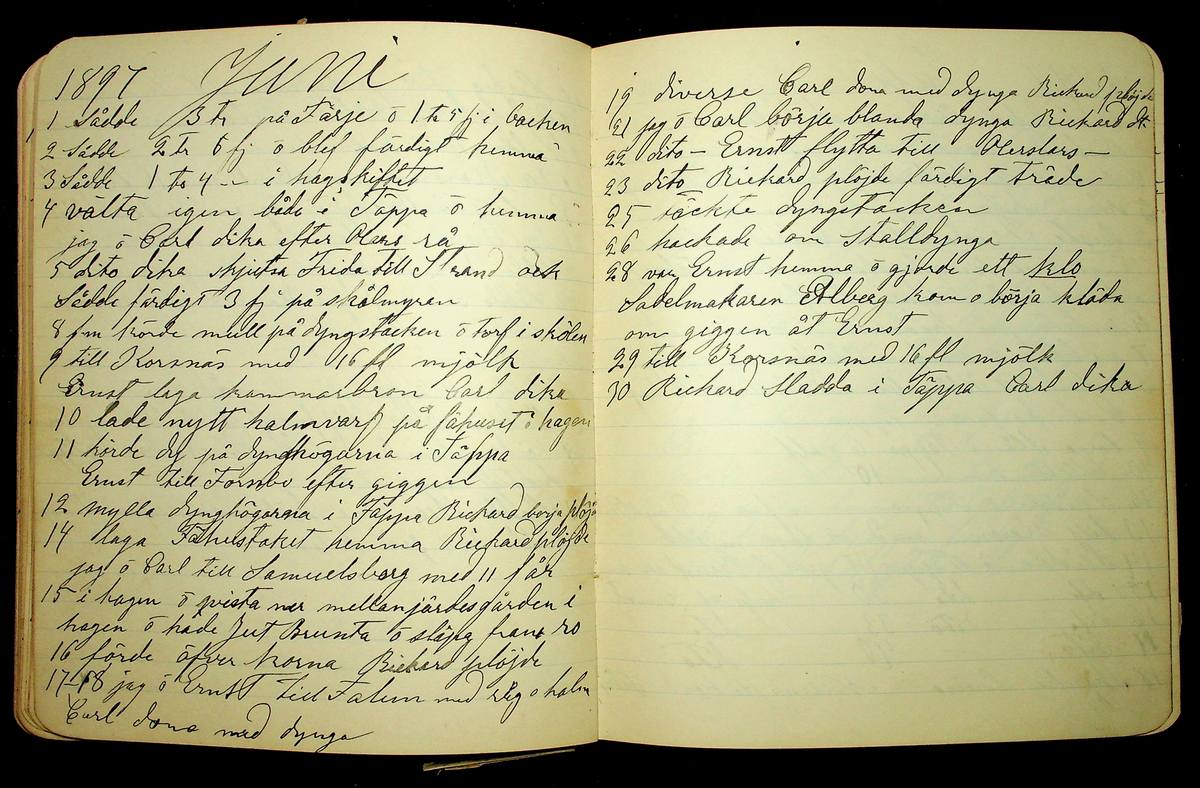 1897 Juni
1 Sådde 3 tr på Färje ö 1 tr 5 fj i backen
2 Sådde 2 tr 6 fj ö blef färdigt hemma
3 Sådde 1 tr 4 -- i hagskiftet
4 välta igen både i Täppa ö hemma
jag ö Carl dika efter Olars rå
5 dito dika skjutsa Frida till Strand ock
Sådde färdigt 3 fj på skålmyran
8 fm körde mull på dyngstacken ö torf i skölen
9 till Korsnäs med 16 fl mjölk
Ernst laga kammarbron Carl dika
10 lade nytt halmvarf på fähuset i hagen
11 körde dy på dynghögarna i Täppa
Ernst till Fornbo efter giggen
12 mylla dynghögarna i Täppa Richard börja plöja
14 laga Fähustaket hemma Richard plöjde
jag ö Carl till Samuelsberg med 11 får
15 i hagen ö ner mellanjärdesgården i
hagen ö både Jut Brunta ö
16 förde öfver korna Richard plöjde
17-18 jag ö Ernst till Falun med råg o halm
Carl dona med dynga
19 diverse Carl dona med dynga Richard plöjde
21 jag ö Carl börja blanda dynga Richard dt
22 dito - Ernst flytta till Olerslars -
23 dito Richard plöjde färdigt träde
25 täckte dyngstacken
26 hackade om Stalldynga
28 var Ernst hemma ö gjorde ett klo
Sadelmakaren Alberg kom o börja kläda
om giggen åt Ernst
29 till Korsnäs med 16 fl mjölk
30 Richard Sladda i Täppa Carl dika